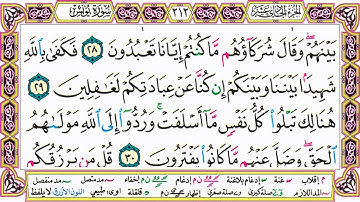 الجزء الحادي عشر ٢١٣ سورة يونس
بَيْنَهُمْ ۖ وَقَالَ شُرَكَاؤُهُم مَّا كُنتُمْ إِيَّانَا تَعْبُدُونَ ٢٨ فَكَفَىٰ بِاللَّهِ
شَهِيدًا بَيْنَنَا وَبَيْنَكُمْ إِن كُنَّا عَنْ عِبَادَتِكُمْ لَغَافِلِينَ ٢٩
هُنَالِكَ تَبْلُوا كُلُّ نَفْسٍ مَّا أَسْلَفَتْ ۚ وَرُدُّوا إِلَى اللَّهِ مَوْلَاهُمُ
الْحَقِّ ۖ وَضَلَّ عَنْهُم مَّا كَانُوا يَفْتَرُونَ ٣٠ قُلْ مَن يَرْزُقُكُم